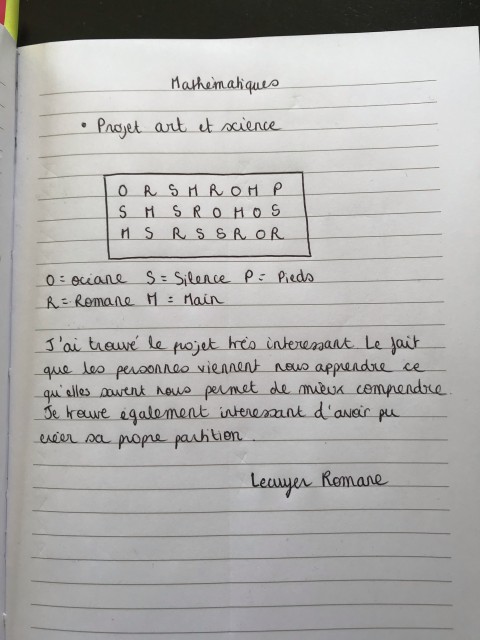 Mathématiques
• Projet art et science
O R S M R O M P
S M S R O M O S
M S R S S R O R
O = Ociane S = Silence P = Pieds
R = Romane M = Main
J'ai trouvé le projet très interessant. Le fait
que les personnes viennent nous apprendre ce
qu'elles savent nous permet de mieux comprendre.
Je trouve également interessant d'avoir pu
créer sa propre partition.
Lecuyer Romane